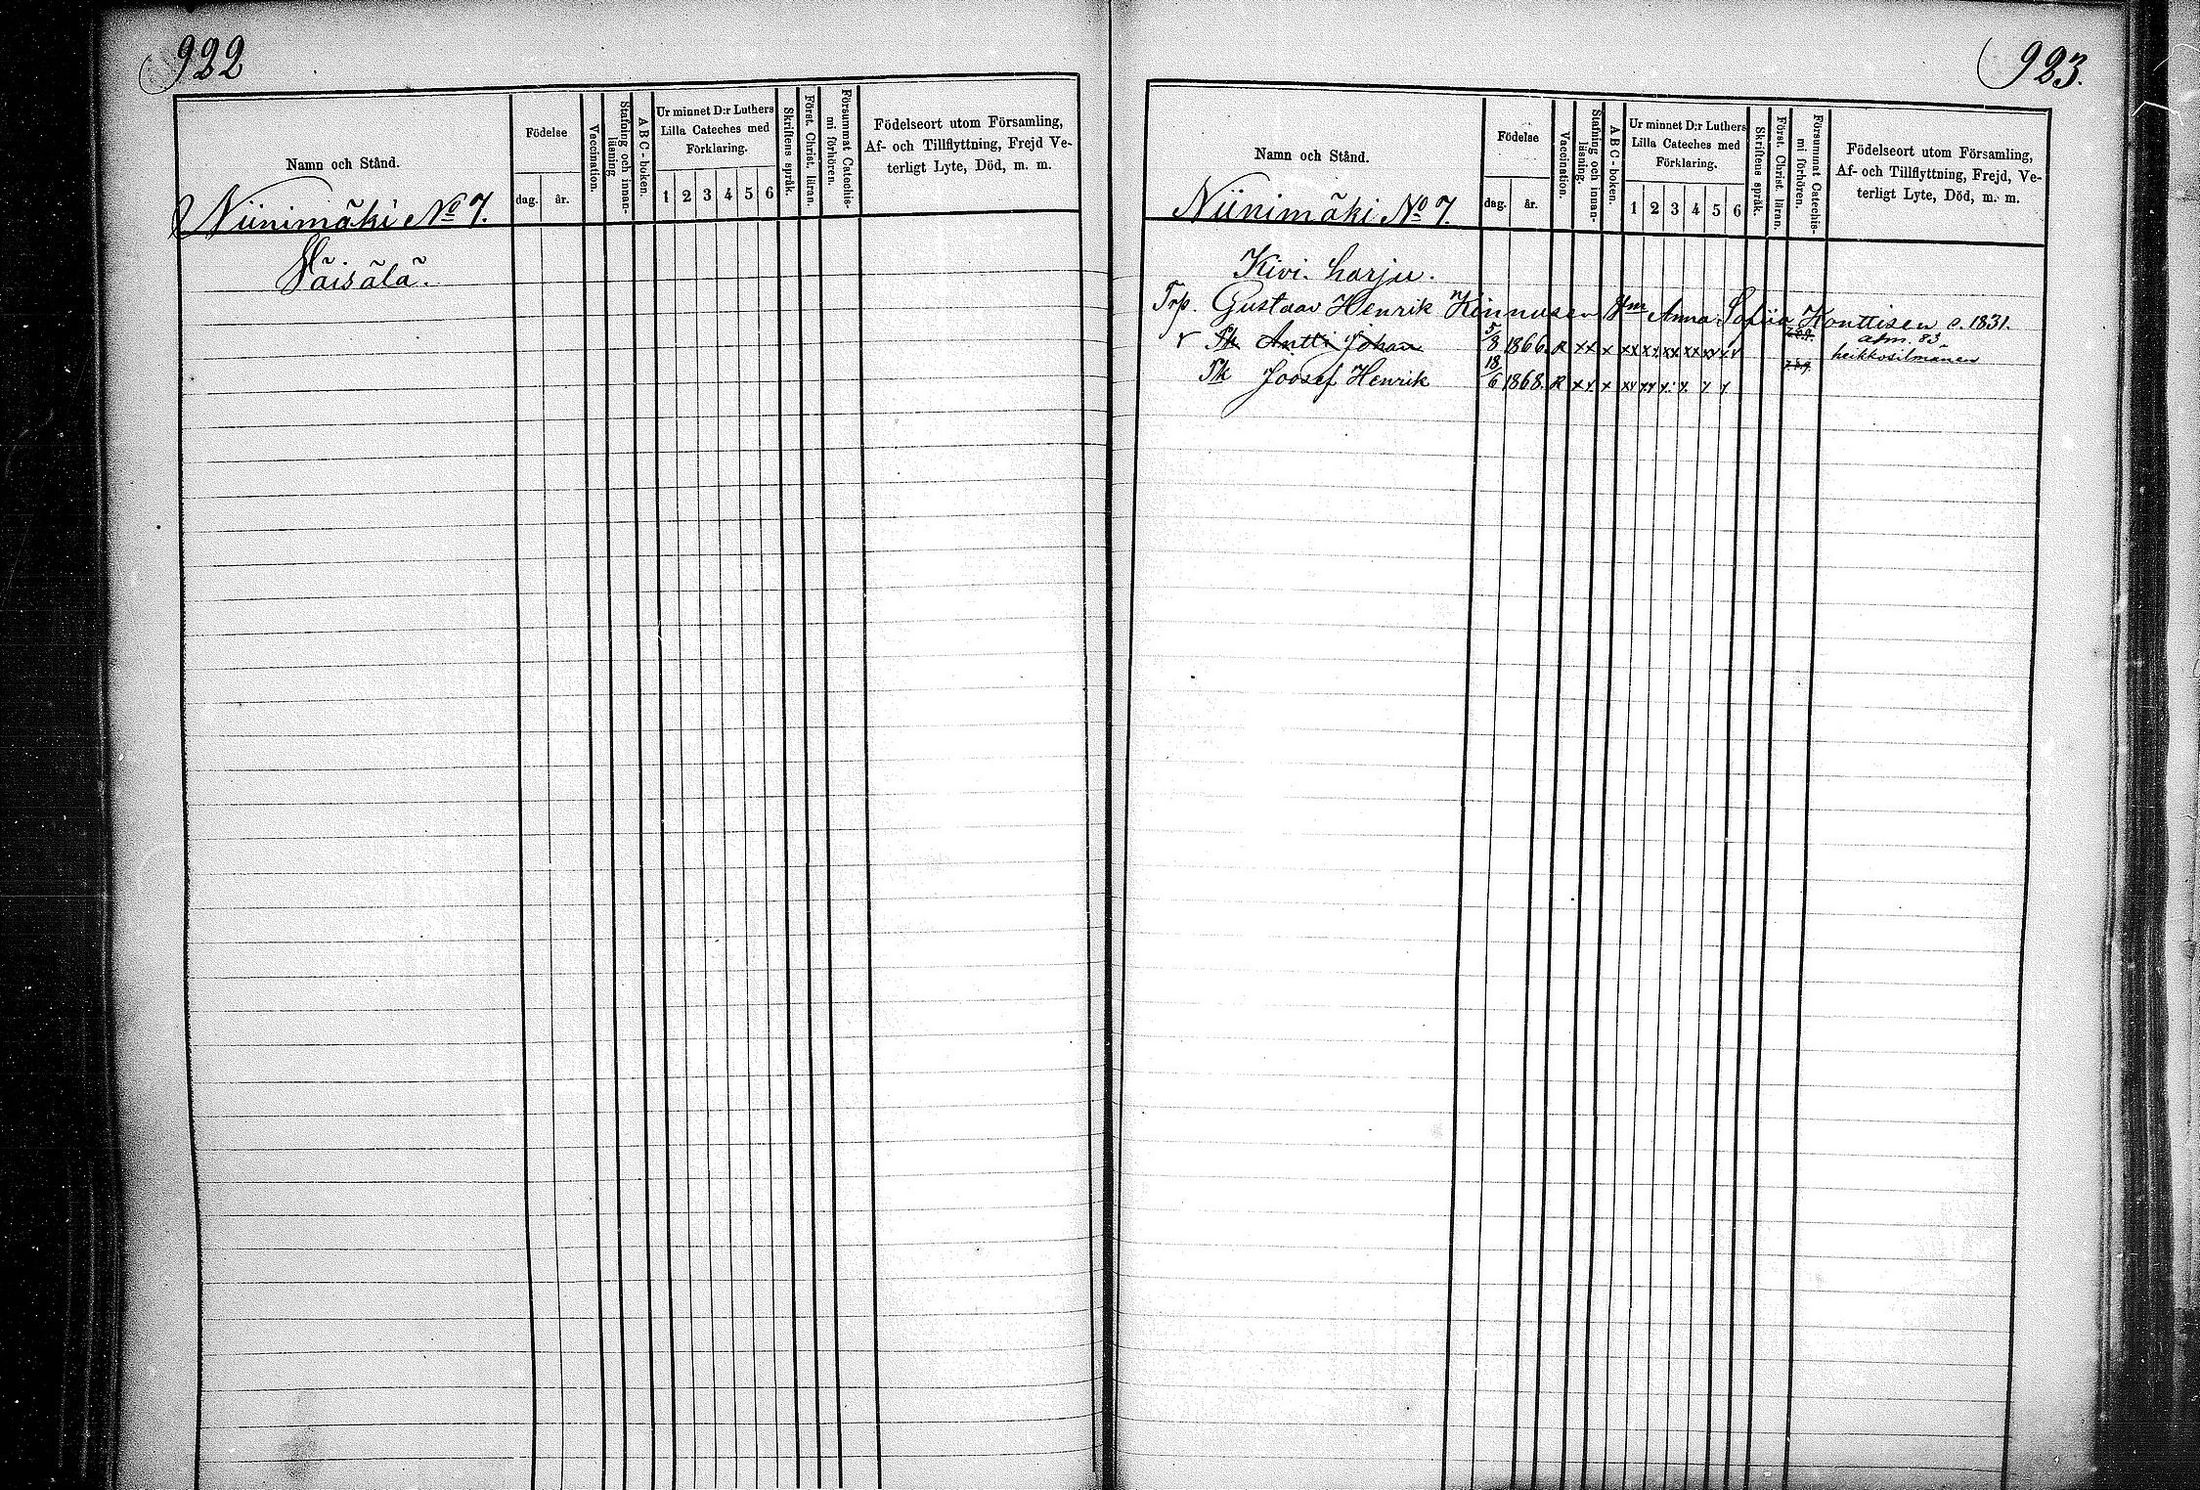 922
Namn och Stånd.
Födelse
dag.
år.
Vaccination.
Stafning och innan-
läsning
A B C - boken.
Ur minnet D:r Luthers
Lilla Cateches med
Förklaring.
1 2 3 4 5 6
Skriftens språk.
Föret. Christ. läran.
Försummat Catechis-
mi förhören.
Födelseort utom Församling,
Af- och Tillflyttning, Frejd Ve-
terligt Lyte, Död, m. m.
Niinimäki No 7.
Väisälä.
923.
Namn och Stånd.
Födelse
dag.
år.
Vaccination.
Stafning och innan-
läsning.
A B C - boken.
Ur minnet D:r Luthers
Lilla Cateches med
Förklaring.
1 2 3 4 5 6
Skriftens språk.
Föret. Christ. läran.
Försummat Catechis-
mi förhören.
Födelseort utom Församling,
Af- och Tillflyttning, Frejd, Ve-
terligt Lyte, Död, m. m.
Niinimäki No 7.
Kivi harju.
Trp. Gustaav Henrik Kinnusen Anna Sofiia Konttisen c. 1831.
Pk Antti Johan 5/8 1866. R xx x xx xx xx xx xx adm. 83.
heikkosilmänen
Pk Joosef Henrik 18/6 1868. R xx x xx xx x x x x